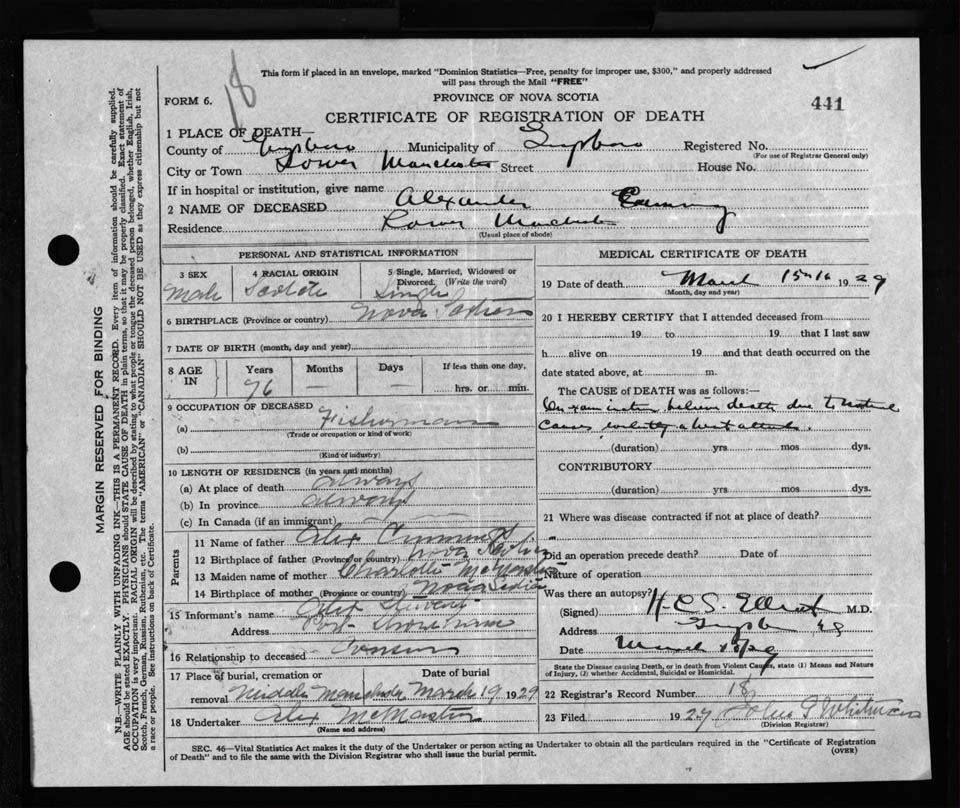 This form if placed in an envelope, marked "Dominion Statistics—Free, penalty for improper use, $300," and properly addressed
will pass through the Mail "FREE"
18
FORM 6.
PROVINCE OF NOVA SCOTIA
441
CERTIFICATE OF REGISTRATION OF DEATH
1 PLACE OF DEATH—
County of Guysboro Municipality of Guysboro Registered No.
(For use of Registrar General only)
City or Town Lower Manchester Street House No.
If in hospital or institution, give name
2 NAME OF DECEASED Alexander Cumming
Residence Lower Manchester
(Usual place of abode)
PERSONAL AND STATISTICAL INFORMATION
3 SEX
Male
4 RACIAL ORIGIN
Scotch
5 Single, Married, Widowed or Divorced. (Write the word)
Single
6 BIRTHPLACE (Province or country) Nova Scotia
7 DATE OF BIRTH (month, day and year)
8 AGE IN
Years Months Days If less than one day,
76 — — hrs. or min.
9 OCCUPATION OF DECEASED
(a) Fisherman
(Trade or occupation or kind of work)
(b)
(Kind of industry)
10 LENGTH OF RESIDENCE (in years and months)
(a) At place of death always
(b) In province always
(c) In Canada (if an immigrant)
Parents
11 Name of father Alex Cumming
12 Birthplace of father (Province or country) Nova Scotia
13 Maiden name of mother Charlotte McMaster
14 Birthplace of mother (Province or country) Nova Scotia
15 Informant's name Alex
Address Port Shoreham
16 Relationship to deceased
17 Place of burial, cremation or removal Date of burial
Middle Manchester March 19 1929
18 Undertaker Alex McMaster
(Name and address)
MEDICAL CERTIFICATE OF DEATH
19 Date of death March 15th 1929
(Month, day and year)
20 I HEREBY CERTIFY that I attended deceased from
19 to 19 that I last saw
h alive on 19 and that death occurred on the
date stated above, at m.
The CAUSE of DEATH was as follows:—
On examination believe death due to natural
causes, a heart attack.
(duration) yrs mos. dys.
CONTRIBUTORY
(duration) yrs mos. dys.
21 Where was disease contracted if not at place of death?
Did an operation precede death? Date of
Nature of operation
Was there an autopsy?
(Signed) H.C.S. Elliot M.D.
Address Guysboro NS
Date March 29
State the Disease causing Death, or in death from Violent Causes, state (1) Means and Nature
of Injury, (2) whether Accidental, Suicidal or Homicidal.
22 Registrar's Record Number 18
23 Filed 1929 John
(Division Registrar)
SEC. 46—Vital Statistics Act makes it the duty of the Undertaker or person acting as Undertaker to obtain all the particulars required in the "Certificate of Registration
of Death" and to file the same with the Division Registrar who shall issue the burial permit.
(OVER)
MARGIN RESERVED FOR BINDING
N.B.—WRITE PLAINLY WITH UNFADING INK—THIS IS A PERMANENT RECORD. Every item of information should be carefully supplied.
AGE should be stated EXACTLY. PHYSICIANS should STATE CAUSE OF DEATH in plain terms, so that it may be properly classified. Exact statement of
OCCUPATION is very important. RACIAL ORIGIN will be described by stating to what people or tongue the deceased person belonged, whether English, Irish,
Scotch, French, German, Russian, Ruthenian, etc. The terms "AMERICAN" or "CANADIAN" SHOULD NOT BE USED as they express citizenship but not
a race or people. See instructions on back of Certificate.